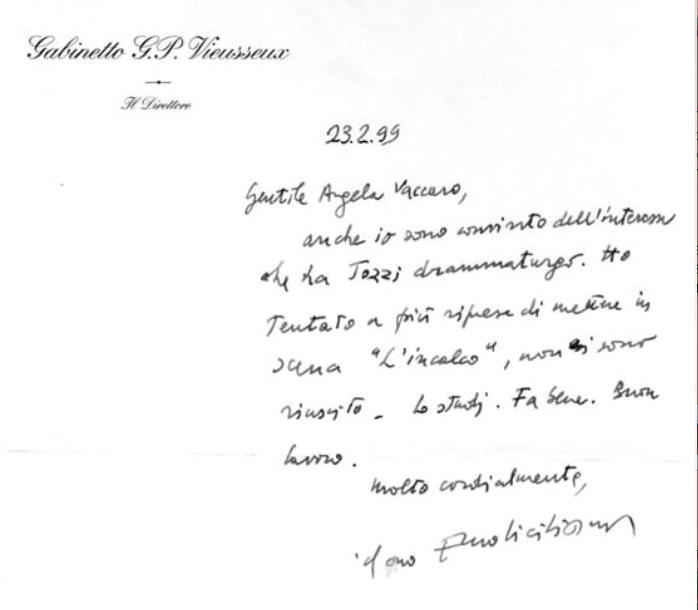 Gabinetto G.P. Vieusseux
Il Direttore
23.2.99
Gentile Angela Vaccaro,
anche io sono convinto dell'interesse
che ha Tozzi drammaturgo. Ho
tentato a più riprese di mettere in
scena "L'incalco", non ci sono
riuscito - Lo studj. Fa bene. Buon
lavoro.
Molto cordialmente,